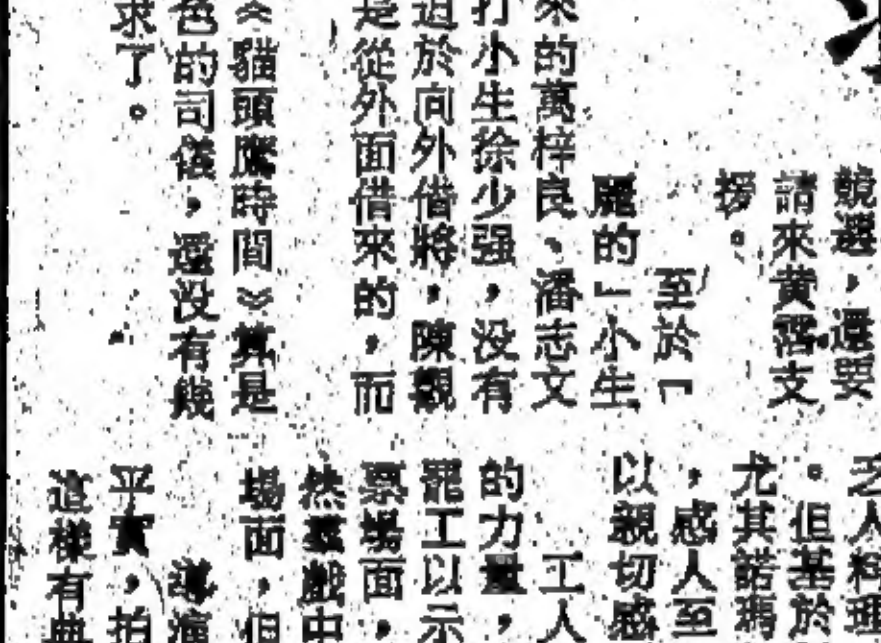 競選，還要
請來黄霑支
援。
至於「
麗的」小生
來的萬梓良、潘志文
打小生徐少强，没有
迫於向外借將，陳觀
是從外面借來的，而
《貓頭鷹時間》算是
色的司儀，還没有幾
求了。
之人料理
。但基於
尤其諾瑪
，感人至
以親切感
工人
的力量，
罷工以示
票場面，
然戲中
場面，但
導演
平實，拍
這樣有典